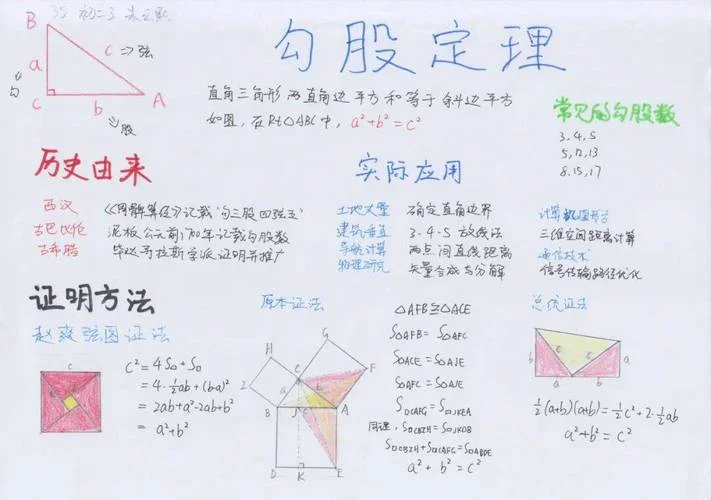 35 初二3
B
a
c ⇒ 弦
勾
C
b
A
股
勾股定理
直角三角形 两直角边 平方和等于斜边平方
如图, 在Rt△ABC中, a²+b²=c²
常见的勾股数
3.4.5
5,12,13
8.15,17
历史由来
西汉 《周髀算经》记载'勾三股四弦五'
古巴比伦 泥板公元前1700年记载勾股数
古希腊 毕达哥拉斯学派证明并推广
实际应用
土地丈量 确定直角边界
建筑垂直 3.4.5 放线法
导航计算 两点间直线距离
物理研究 矢量合成与分解
计算机图形学
三维空间距离计算
通信技术
信号传输路径优化
证明方法
赵爽弦图证法
c
c²=4S△+S□
=4·½ab+(b-a)²
=2ab+a²-2ab+b²
=a²+b²
原本证法
G
H
F
C
I
a
b
B
J
c
A
D
K
E
△AFB≌△ACE
S△AFB=S△AFC
S△ACE=S△AJE
S△AFC=S△AJE
S□CAFG=S□JKEA
同理,S□CBIH=S□JKDB
S□CBIH+S□CAFG=S□ABDE
a²+b²=c²
总统证法
b
a
c
c
a
b
½(a+b)(a+b)=½c²+2·½ab
a²+b²=c²